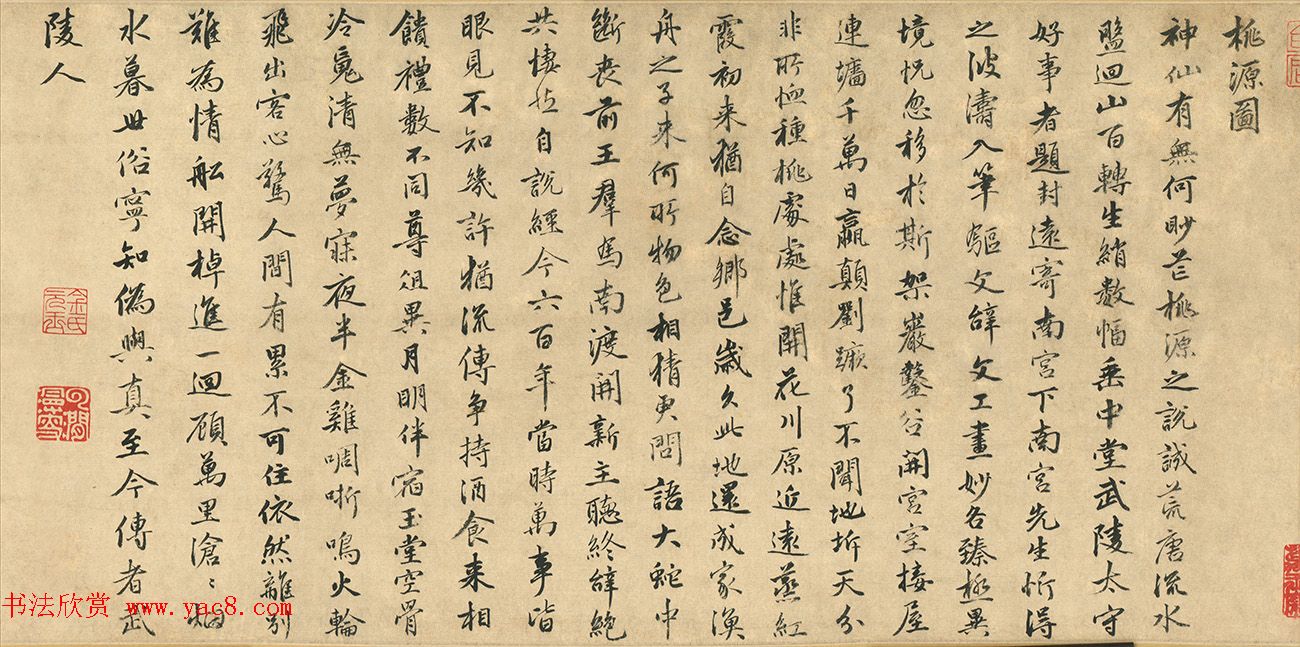 桃源圖
神仙有無何眇芒桃源之說誠荒唐流水
盤迴山百轉生綃數幅垂中堂武陵太守
好事者題封遠寄南宮下南宮先生忻得
之波濤入筆驅文辭文工畫妙各臻極異
境恍忽移於斯架巖鑿谷開宮室接屋
連墻千萬日嬴顛劉蹶了不聞地坼天分
非所恤種桃處處惟開花川原近遠蒸紅
霞初来猶自念鄉邑歲久此地還成家漁
舟之子来何所物色相猜更問語大蛇中
斷喪前王羣馬南渡開新主聽終辭絕
共悽然自說經今六百年當時萬事皆
眼見不知幾許猶流傳争持酒食来相
饋禮數不同尊俎異月明伴宿玉堂空骨
冷魂清無夢寐夜半金雞啁哳鳴火輪
飛出客心驚人間有累不可住依然離別
難為情船開棹進一迴顧萬里滄〻烟
水暮世俗寧知偽與真至今傳者武
陵人
金氏
书法欣赏 www.yac8.com